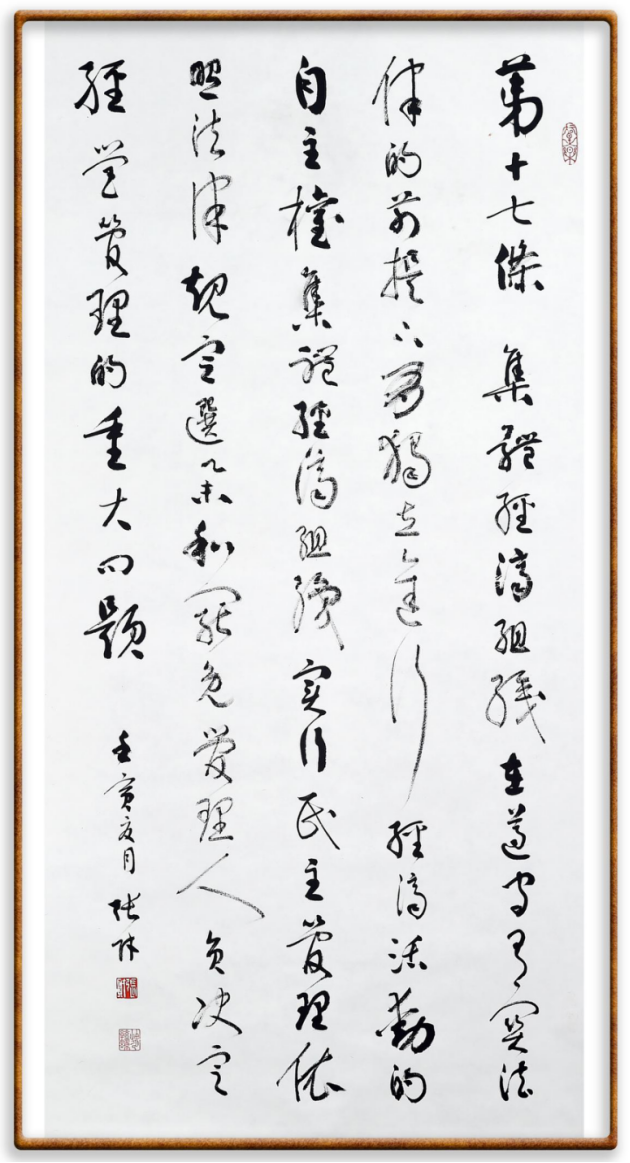 第十七條 集體經濟組織在遵守有關法
律的前提下有獨立進行經濟活動的
自主權集體經濟組織實行民主管理依
照法律規定選舉和罷免管理人員決定
經營管理的重大問題
壬寅 月 張